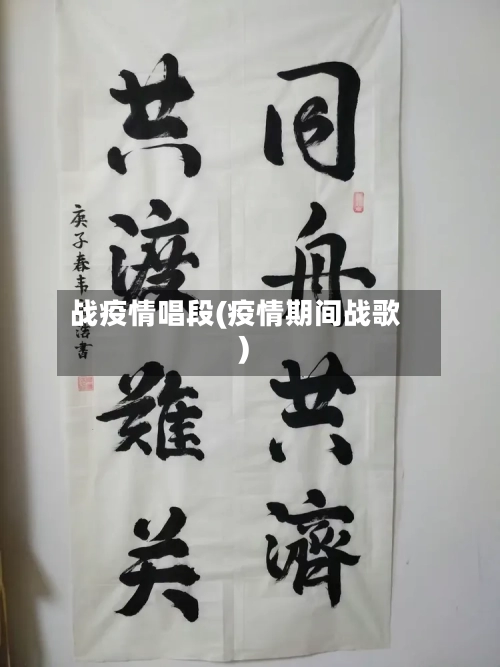 同舟共濟
共渡難关
庚子春韦
浩書
战疫情唱段(疫情期间战歌
)